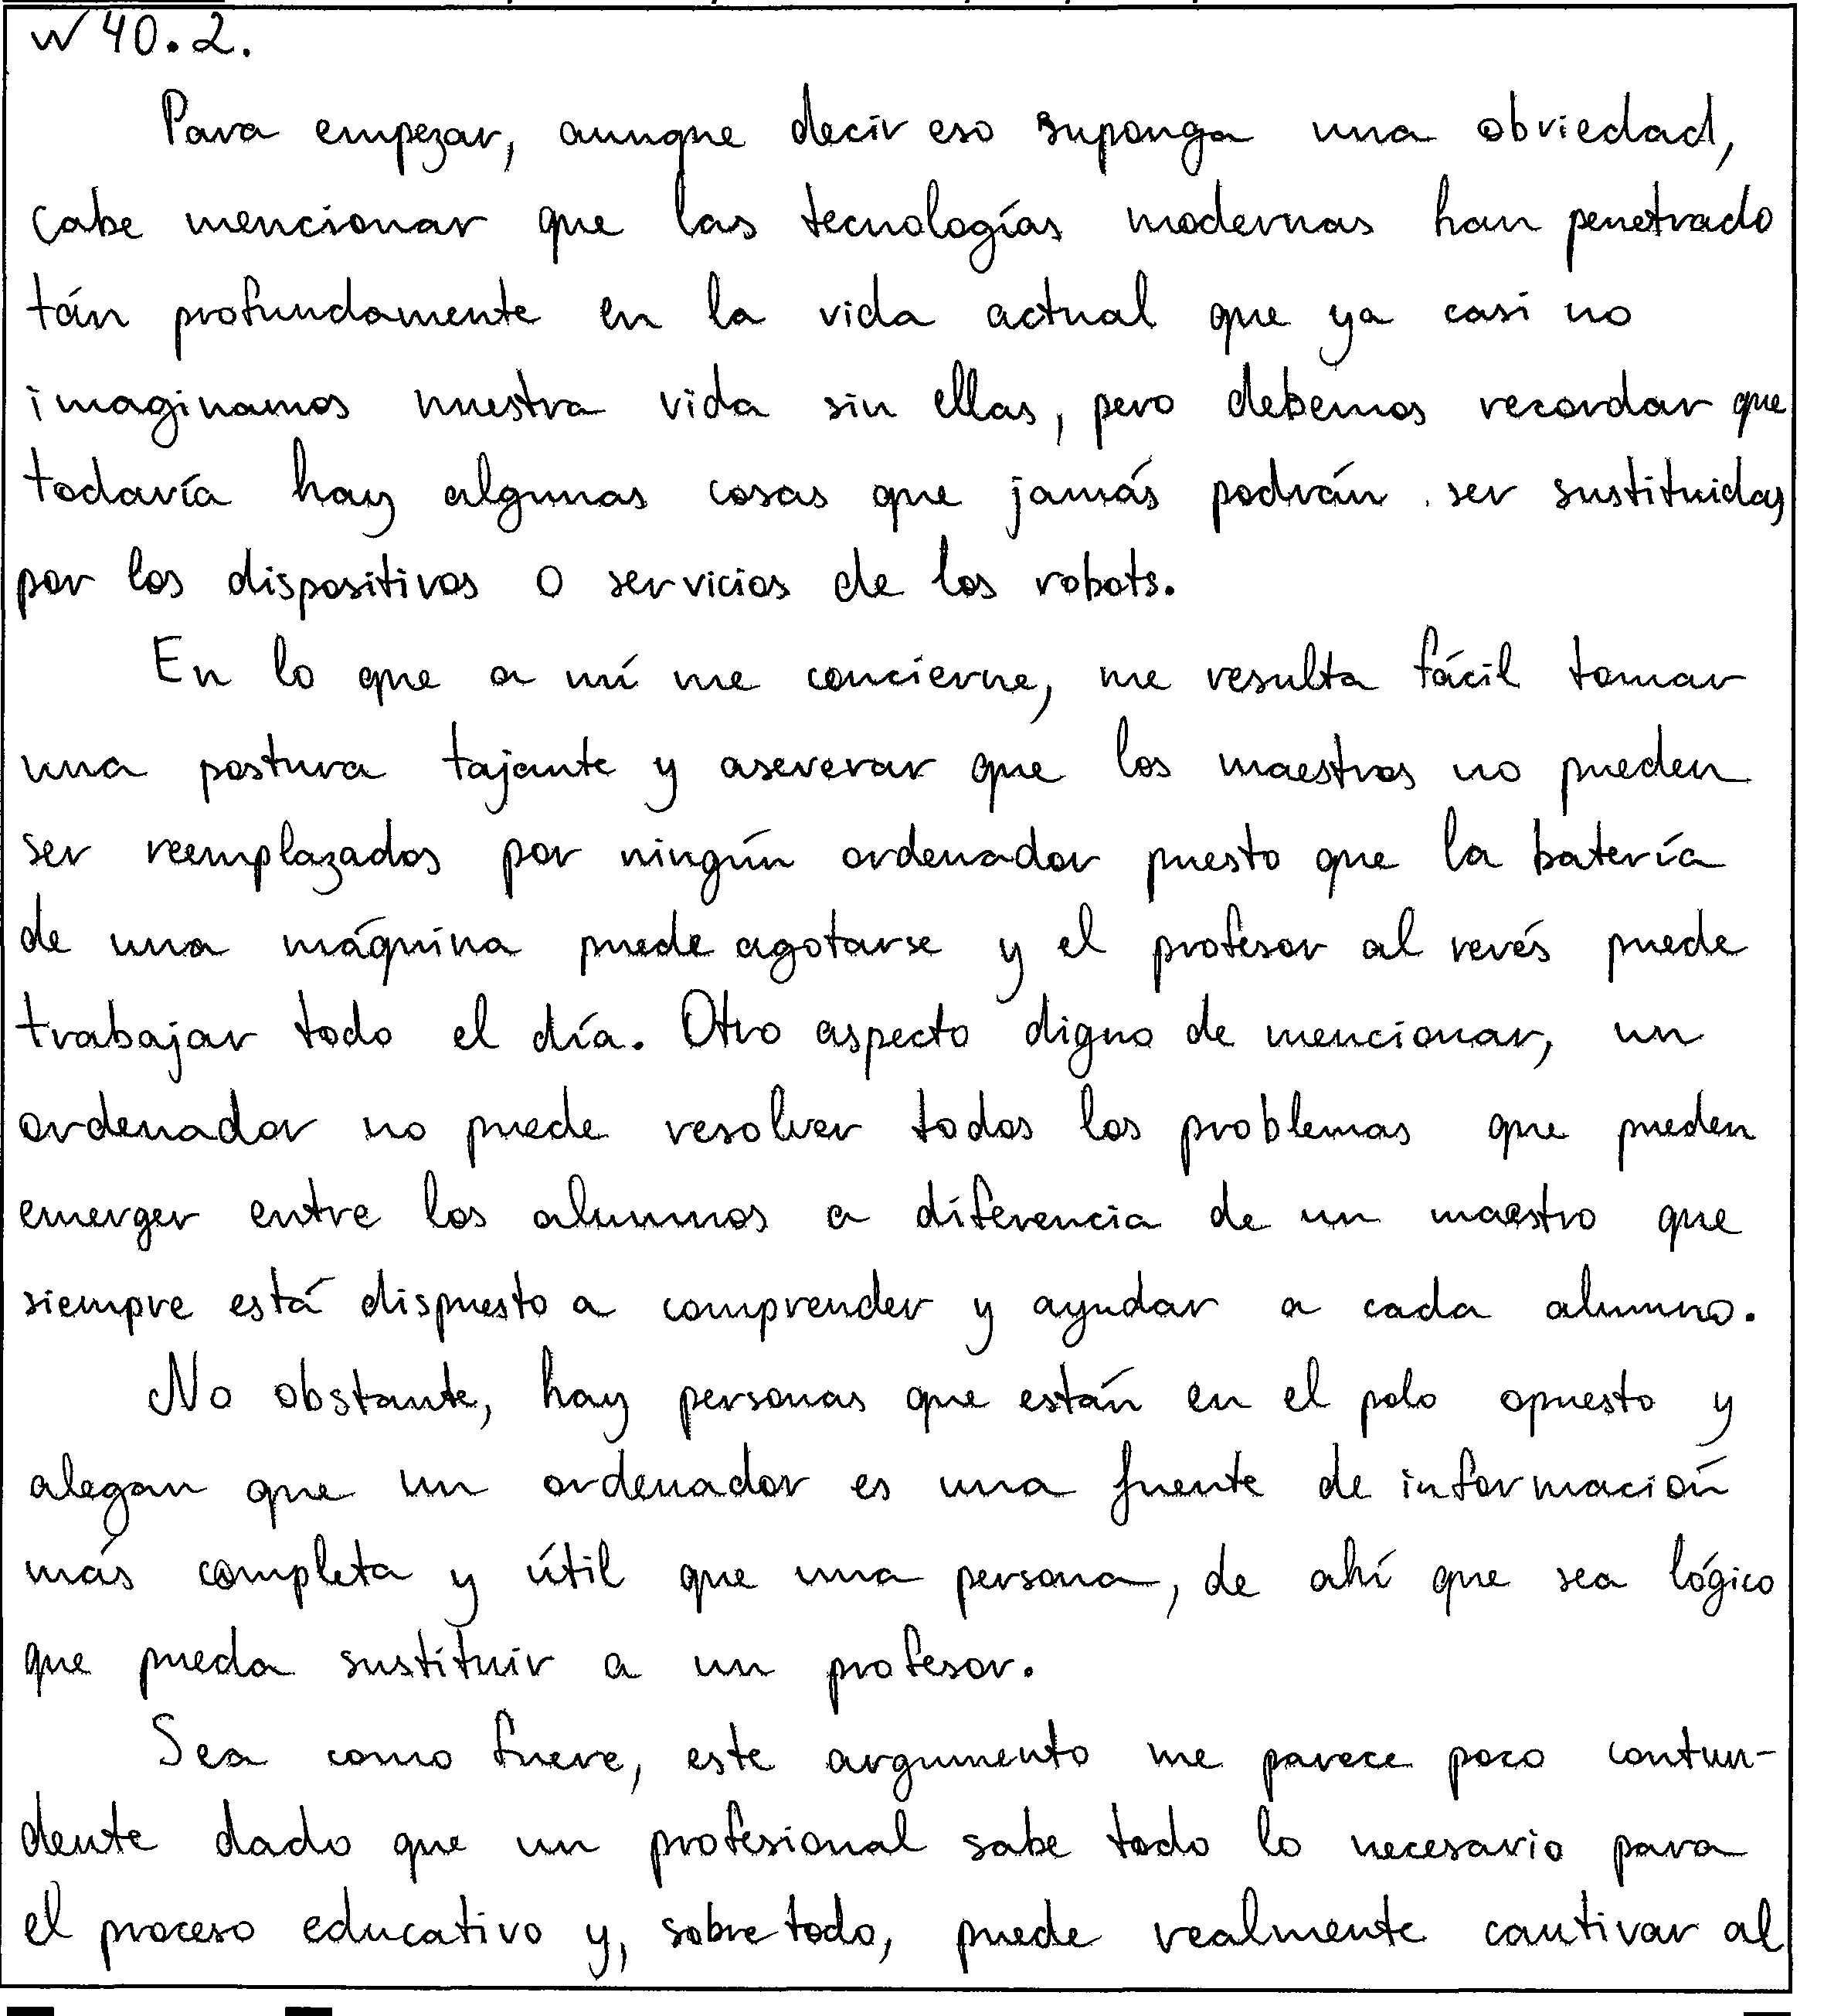 №40.2.
Para empezar, aunque decir eso suponga una obviedad,
cabe mencionar que las tecnologías modernas han penetrado
tán profundamente en la vida actual que ya casi no
imaginamos nuestra vida sin ellas, pero debemos recordar que
todavía hay algunas cosas que jamás podrán ser sustituidas
por los dispositivos o servicios de los robots.
En lo que a mí me concierne, me resulta fácil tomar
una postura tajante y aseverar que los maestros no pueden
ser reemplazados por ningún ordenador puesto que la batería
de una máquina puede agotarse y el profesor al revés puede
trabajar todo el día. Otro aspecto digno de mencionar, un
ordenador no puede resolver todos los problemas que pueden
emerger entre los alumnos a diferencia de un maestro que
siempre está dispuesto a comprender y ayudar a cada alumno.
No obstante, hay personas que están en el polo opuesto y
alegan que un ordenador es una fuente de información
más completa y útil que una persona, de ahí que sea lógico
que pueda sustituir a un profesor.
Sea como fuere, este argumento me parece poco contun-
dente dado que un profesional sabe todo lo necesario para
el proceso educativo y, sobre todo, puede realmente cautivar al